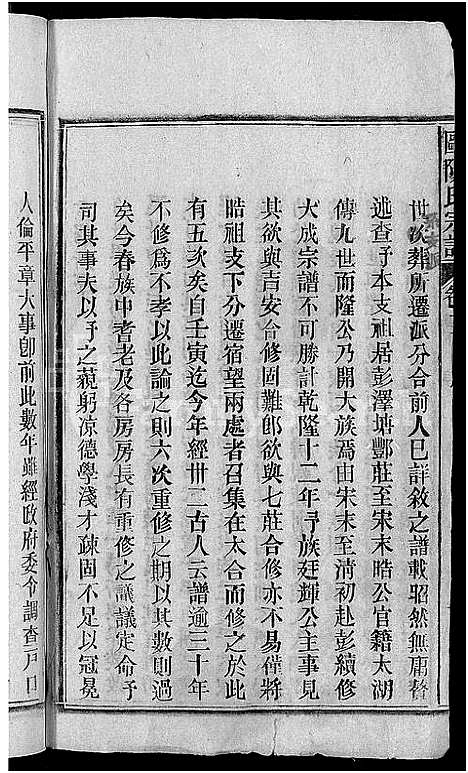 歐陽氏宗譜
世次葬所遷派分合前人已詳敘之譜載昭然無庸贅
述查予本支祖居彭澤塘酆莊至宋末晧公官籍太湖
傳九世而隆公乃開大族焉由宋末至清初赴彭續修
大成宗譜不可勝計乾隆十二年予族廷輝公主事見
其欲與吉安合修固難郎欲與七莊合修亦不易僅將
晧祖支下分遷宿望兩處者召集在太合而修之於此
有五次矣自壬寅迄今年經卅二古人云譜逾三十年
不修為不孝以此論之則六次重修之期以其數則過
矣今春族中耆老及各房房長有重修之議議定命予
司其事夫以予之藐躬涼德學淺才疎固不足以冠冕
人倫平章大事卽前此數年雖經政府委令調查戶口